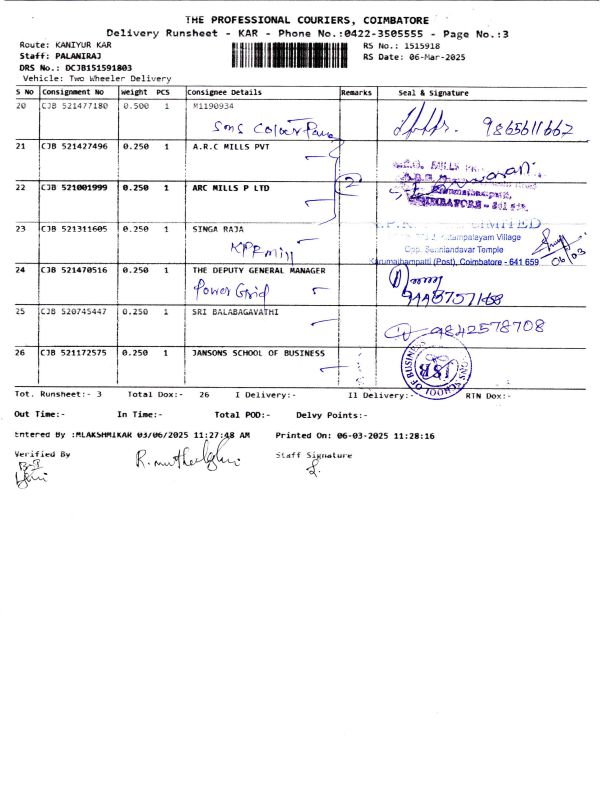 THE PROFESSIONAL COURIERS, COIMBATORE
Delivery Runsheet - KAR - Phone No.:0422-3505555 - Page No.:3
Route: KANIYUR KAR RS No.: 1515918
Staff: PALANIRAJ RS Date: 06-Mar-2025
DRS No.: DCJB151591803
Vehicle: Two Wheeler Delivery
S No Consignment No Weight PCS Consignee Details Remarks Seal & Signature
20 CJB 521477180 0.500 1 M1190934
Sms 9865611662
21 CJB 521427496 0.250 1 A.R.C MILLS PVT
22 CJB 521001999 0.250 1 ARC MILLS P LTD 2
COIMBATORE
23 CJB 521311605 0.250 1 SINGA RAJA
LIMITED
KPR mill
Village
Opp. Temple
Karumathampatti (Post), Coimbatore - 641 659
06/03
24 CJB 521470516 0.250 1 THE DEPUTY GENERAL MANAGER
Power Grid
25 CJB 520745447 0.250 1 SRI BALABAGAVATHI
9842578708
26 CJB 521172575 0.250 1 JANSONS SCHOOL OF BUSINESS
SCHOOL OF BUSINESS
JSB
Tot. Runsheet:- 3 Total Dox:- 26 I Delivery:- II Delivery:- RTN Dox:-
Out Time:- In Time:- Total POD:- Delvy Points:-
Entered By :MLAKSHMIKAR 03/06/2025 11:27:48 AM Printed On: 06-03-2025 11:28:16
Verified By Staff Signature